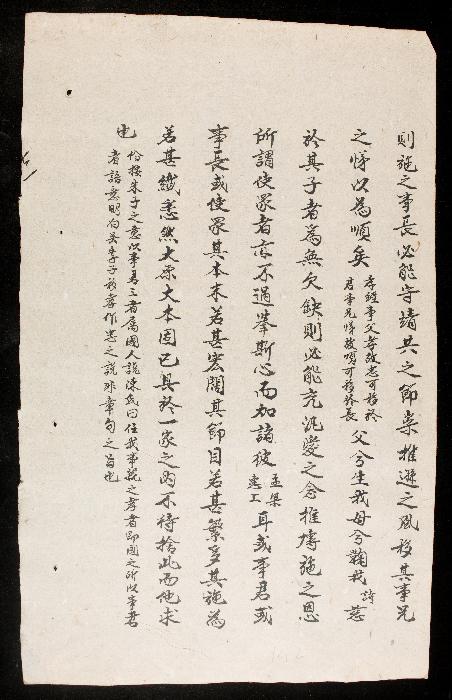 則施之事長必能守靖共之節崇推遜之風移其事兄
之悌以為順矣孝經事父孝故忠可移於君事兄悌故順可移於長父兮生我母兮鞠我詩慈
於其子者為無欠缺則必能充汎愛之念推博施之恩
所謂使眾者亦不過舉斯心而加諸彼孟梁惠王耳或事君或
事長或使眾其本末若甚宏闊其節目若甚繁多其施為
若甚纖悉然大原大本固已具於一家之內不待捨此而他求
也恰按朱子之意以事焉三者屬國人說陳氏曰任我事親之孝者即國之所以事君
者語意明白吳季子移忠作孝之說非章句之旨也